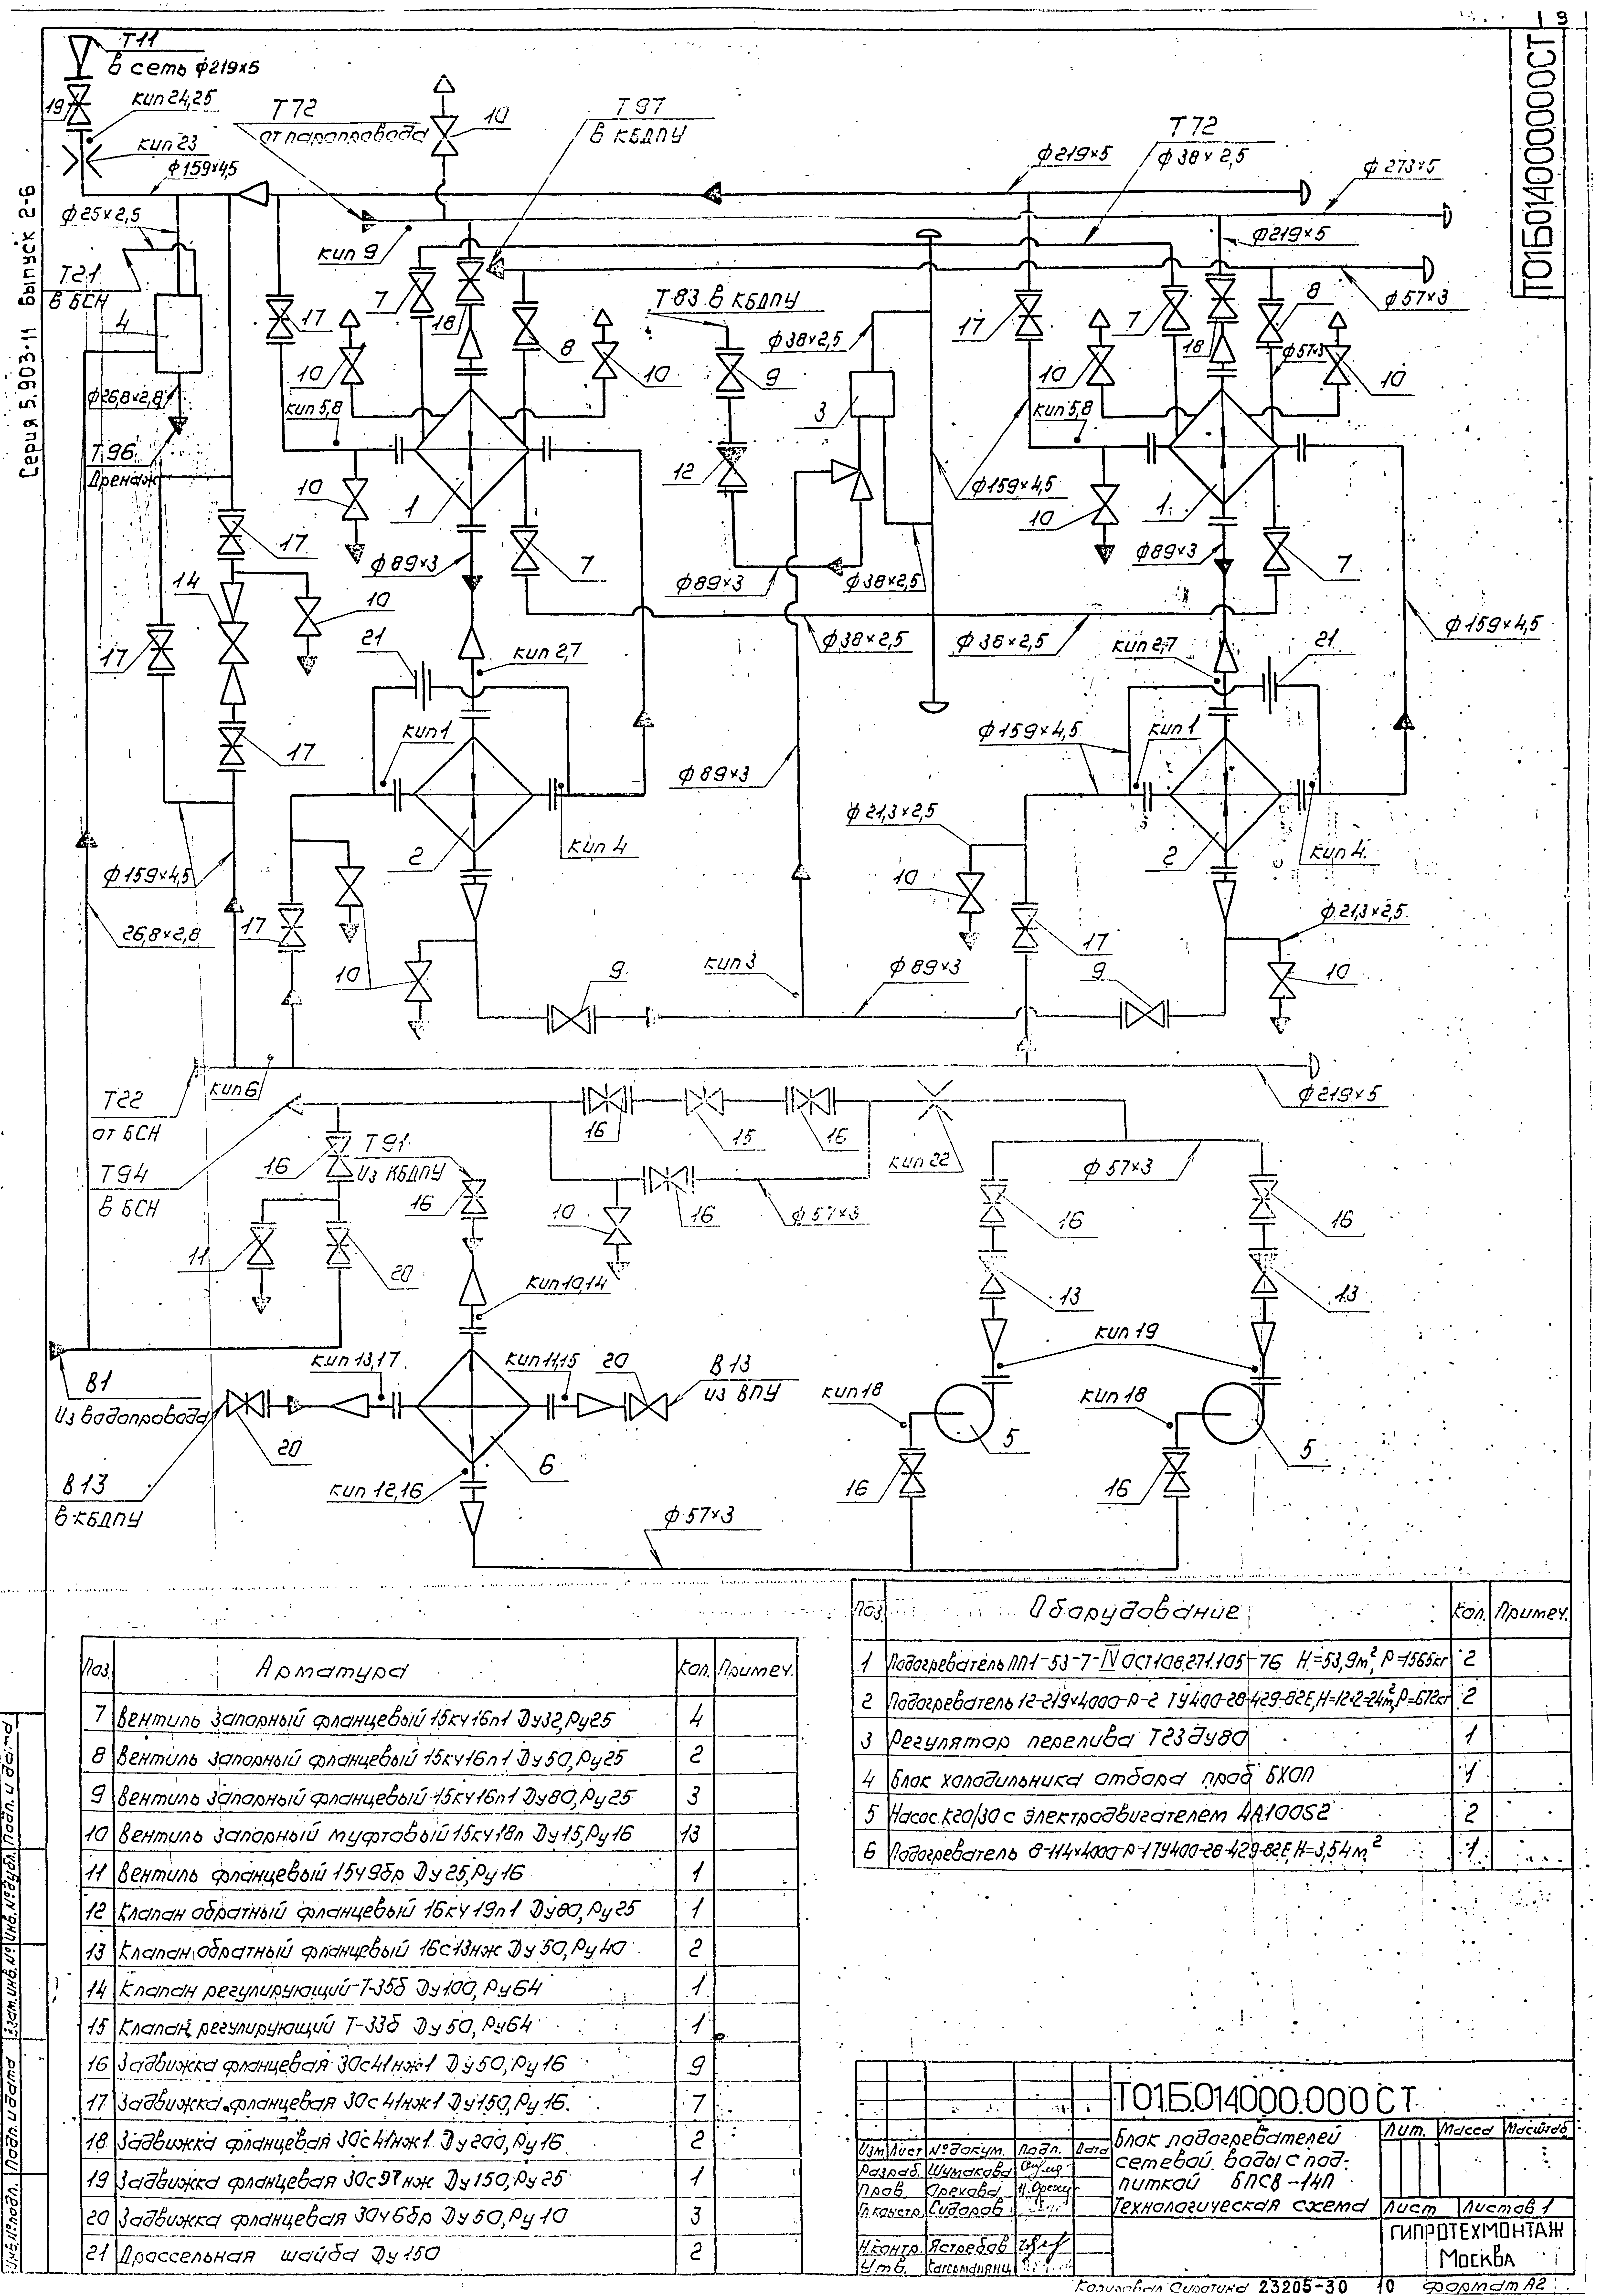 3
Т01Б014000000СТ
Серия 5.903-11 Выпуск 2-6
Т11
в сеть ф219×5
19
кип 24,25
кип 23
ф159×4,5
Т72
от паропровода
10
Т97
в КБДПУ
ф219×5
Т72
ф38×2,5
ф273×5
ф25×2,5
кип 9
ф219×5
Т21
в БСН
4
17
7
18
8
Т83 в КБДПУ
ф38×2,5
17
7
18
8
ф57×3
ф57×3
10
10
9
10
10
ф26,8×2,8
кип 5,8
3
кип 5,8
Т96
Дренаж
10
1
12
ф159×4,5
10
1
17
ф89×3
7
ф89×3
ф38×2,5
ф89×3
7
14
10
17
21
кип 2,7
ф38×2,5
ф38×2,5
кип 2,7
21
ф159×4,5
17
кип 1
ф89×3
ф159×4,5
кип 1
ф21,3×2,5
2
кип 4
2
кип 4
ф159×4,5
10
26,8×2,8
17
17
ф21,3×2,5
10
9
кип 3
ф89×3
9
10
Т22
от БСН
кип 6
ф219×5
Т94
в БСН
16
Т91
Из КБДПУ
16
15
16
кип 22
ф57×3
16
10
16
ф57×3
16
16
11
20
кип 10,14
13
13
кип 19
В1
Из водопровода
кип 13,17
кип 11,15
20
В13
из ВПУ
кип 18
кип 18
20
6
5
5
В13
в КБДПУ
кип 12,16
16
16
ф57×3
Поз. Оборудование Кол. Примеч.
1 Подогреватель ПП1-53-7-IV ОСТ108.271.105-76 Н=53,9м², Р=1565кг 2
2 Подогреватель 12-219×4000-Р-2 ТУ400-28-429-82Е, Н=12×2=24м², Р=672кг 2
3 Регулятор перелива Т23 Ду80 1
4 Блок холодильника отбора проб БХОП 1
5 Насос К20/30 с электродвигателем 4А100S2 2
6 Подогреватель 8-114×4000-Р-1 ТУ400-28-429-82Е, Н=3,54м² 1
Поз. Арматура Кол. Примеч.
7 Вентиль запорный фланцевый 15кч16п1 Ду32, Ру25 4
8 Вентиль запорный фланцевый 15кч16п1 Ду50, Ру25 2
9 Вентиль запорный фланцевый 15кч16п1 Ду80, Ру25 3
10 Вентиль запорный муфтовый 15кч18п Ду15, Ру16 13
11 Вентиль фланцевый 15ч9бр Ду25, Ру16 1
12 Клапан обратный фланцевый 16кч19п1 Ду80, Ру25 1
13 Клапан обратный фланцевый 16с13нж Ду50, Ру40 2
14 Клапан регулирующий Т-35б Ду100, Ру64 1
15 Клапан регулирующий Т-33б Ду50, Ру64 1
16 Задвижка фланцевая 30с41нж1 Ду50, Ру16 9
17 Задвижка фланцевая 30с41нж1 Ду150, Ру16 7
18 Задвижка фланцевая 30с41нж1 Ду200, Ру16 2
19 Задвижка фланцевая 30с97нж Ду150, Ру25 1
20 Задвижка фланцевая 30ч6бр Ду50, Ру10 3
21 Дроссельная шайба Ду150 2
Т01.Б.014000.000СТ
Изм Лист № докум. Подп. Дата
Разраб. Шумакова
Пров. Орехова
Гл.констр. Сидоров
Н.контр. Ястребов
Утв.
Блок подогревателей
сетевой воды с под-
питкой БПСВ-14П
Технологическая схема
Лит. Масса Масштаб
Лист Листов 1
ГИПРОТЕХМОНТАЖ
Москва
Инв.№подл. Подп. и дата Взам.инв.№ Инв.№дубл. Подп. и дата
Копировал 23205-30 10 Формат А2